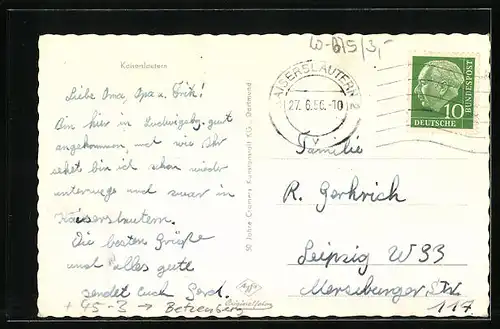 Kaiserslautern
W-B75/3,-
Liebe Oma, Opa u. Erik!
Bin hier in Ludwigsbg. gut
angekommen, und wie Ihr
sehet bin ich schon wieder
unterwegs und zwar in
Kaiserslautern.
Die besten Grüße
und alles gute
sendet euch Gerd.
+ 45-3 → Betzenberg
50 Jahre Cramers Kunstanstalt KG., Dortmund
Originalfoto
KAISERSLAUTERN
27.6.56.-10
10
DEUTSCHE
BUNDESPOST
Familie
R. Gerhrich
Leipzig W 33
Merseburger Str.
117